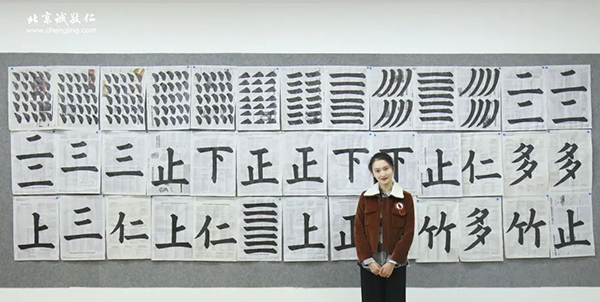 北京诚敬仁
www.chengjing.com
二 二
二 二
三 三 止 下 正 正 下 下 止 仁 多 多
上 三 仁 上 仁 上 竹 多 竹 止